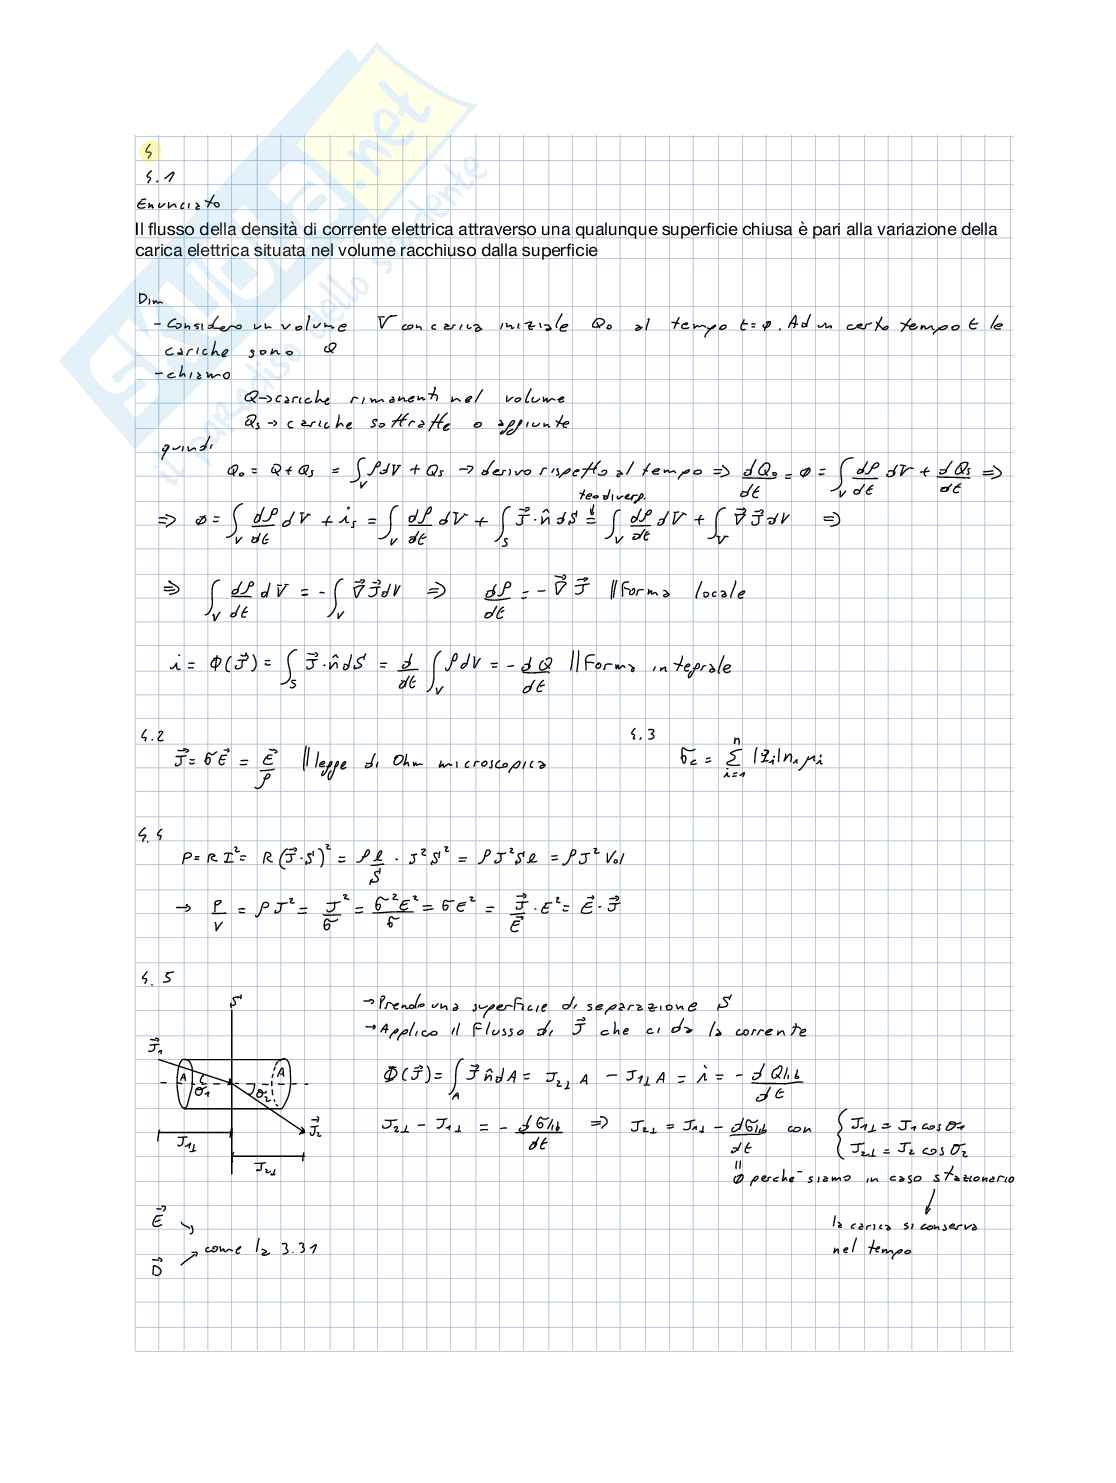 4
4.1
Enunciato
Il flusso della densità di corrente elettrica attraverso una qualunque superficie chiusa è pari alla variazione della
carica elettrica situata nel volume racchiuso dalla superficie
Dim
- Considero un volume V con carica iniziale Q₀ al tempo t=φ. Ad un certo tempo t le
cariche sono Q
- chiamo
Q → cariche rimanenti nel volume
Qs → cariche sottratte o aggiunte
quindi
Q₀ = Q + Qs = ∫_V ρdV + Qs → derivo rispetto al tempo ⇒ dQ₀/dt = φ = ∫_V dρ/dt dV + dQs/dt ⇒
teo diverg.
⇒ φ = ∫_V dρ/dt dV + i_s = ∫_V dρ/dt dV + ∫_S J⃗·n̂ dS = ∫_V dρ/dt dV + ∫_V ∇⃗ J⃗ dV ⇒
⇒ ∫_V dρ/dt dV = -∫_V ∇⃗ J⃗ dV ⇒ dρ/dt = -∇⃗ J⃗ // Forma locale
i = Φ(J⃗) = ∫_S J⃗·n̂ dS = d/dt ∫_V ρdV = -dQ/dt // Forma integrale
4.2
J⃗ = σE⃗ = E⃗/ρ // legge di Ohm microscopica
4.3
σc = Σ_{i=1}^{n} |q_i| n_i μ_i
4.4
P = R I² = R (J⃗·S)² = ρl/S · J²S² = ρJ²Sl = ρJ² Vol
→ P/V = ρJ² = J²/σ = σ²E²/σ = σE² = J⃗/E⃗ · E² = E⃗·J⃗
4.5
S
→ Prendo una superficie di separazione S
→ Applico il flusso di J⃗ che ci da la corrente
J⃗₁
A
θ₁
A
θ₂
J⃗₂
J₁⊥
J₂⊥
Φ(J⃗) = ∫_A J⃗ n̂ dA = J₂⊥ A - J₁⊥ A = i = -d Qlib/dt
J₂⊥ - J₁⊥ = -dσlib/dt ⇒ J₂⊥ = J₁⊥ - dσlib/dt con { J₁⊥ = J₁ cos θ₁
J₂⊥ = J₂ cos θ₂
=
φ perché siamo in caso stazionario
la carica si conserva
nel tempo
E⃗
→ come la 3.31
D⃗
SKUOLA.net
il paradiso dello studente